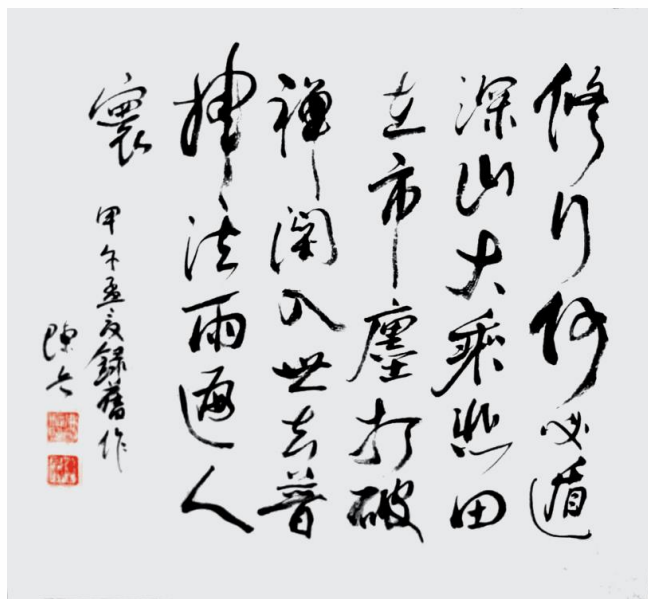 修行何必遁
深山大乘悲田
在市廛打破
禪関入世去普
揮法雨遍人
寰
甲午孟夏錄舊作
陳